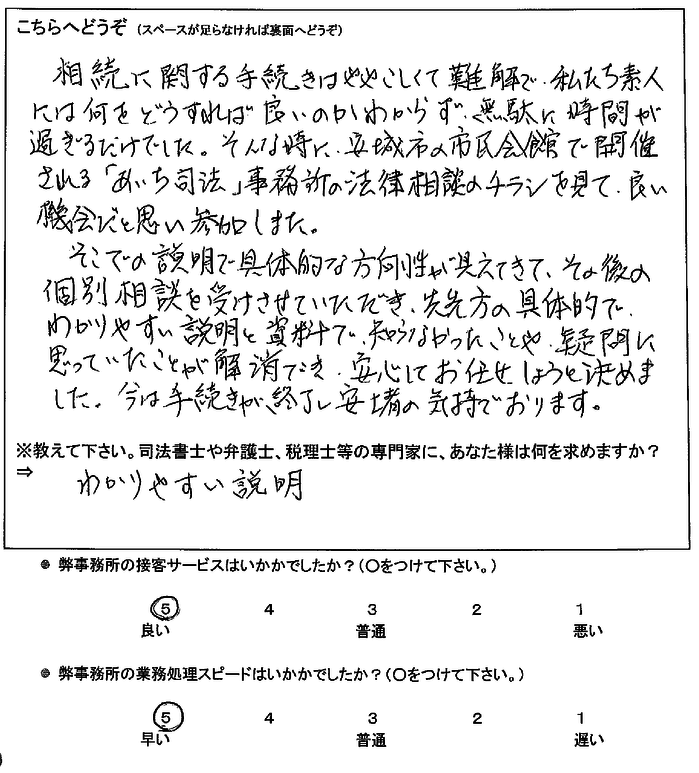 こちらへどうぞ（スペースが足らなければ裏面へどうぞ）
相続に関する手続きはややこしくて難解で、私たち素人
には何をどうすれば良いのかわからず、無駄に時間が
過ぎるだけでした。そんな時に、安城市の市民会館で開催
される「あいち司法」事務所の法律相談のチラシを見て、良い
機会だと思い参加しました。
そこでの説明で具体的な方向性が見えてきて、その後の
個別相談を受けさせていただき、先生方の具体的で、
わかりやすい説明と資料で、知らなかったことや、疑問に
思っていたことが解消でき、安心してお任せしようと決めま
した。今は手続きが、終了し安堵の気持でおります。
※教えて下さい。司法書士や弁護士、税理士等の専門家に、あなた様は何を求めますか？
⇒ わかりやすい説明
● 弊事務所の接客サービスはいかかでしたか？（○をつけて下さい。）
5 4 3 2 1
良い 普通 悪い
● 弊事務所の業務処理スピードはいかかでしたか？（○をつけて下さい。）
5 4 3 2 1
早い 普通 遅い